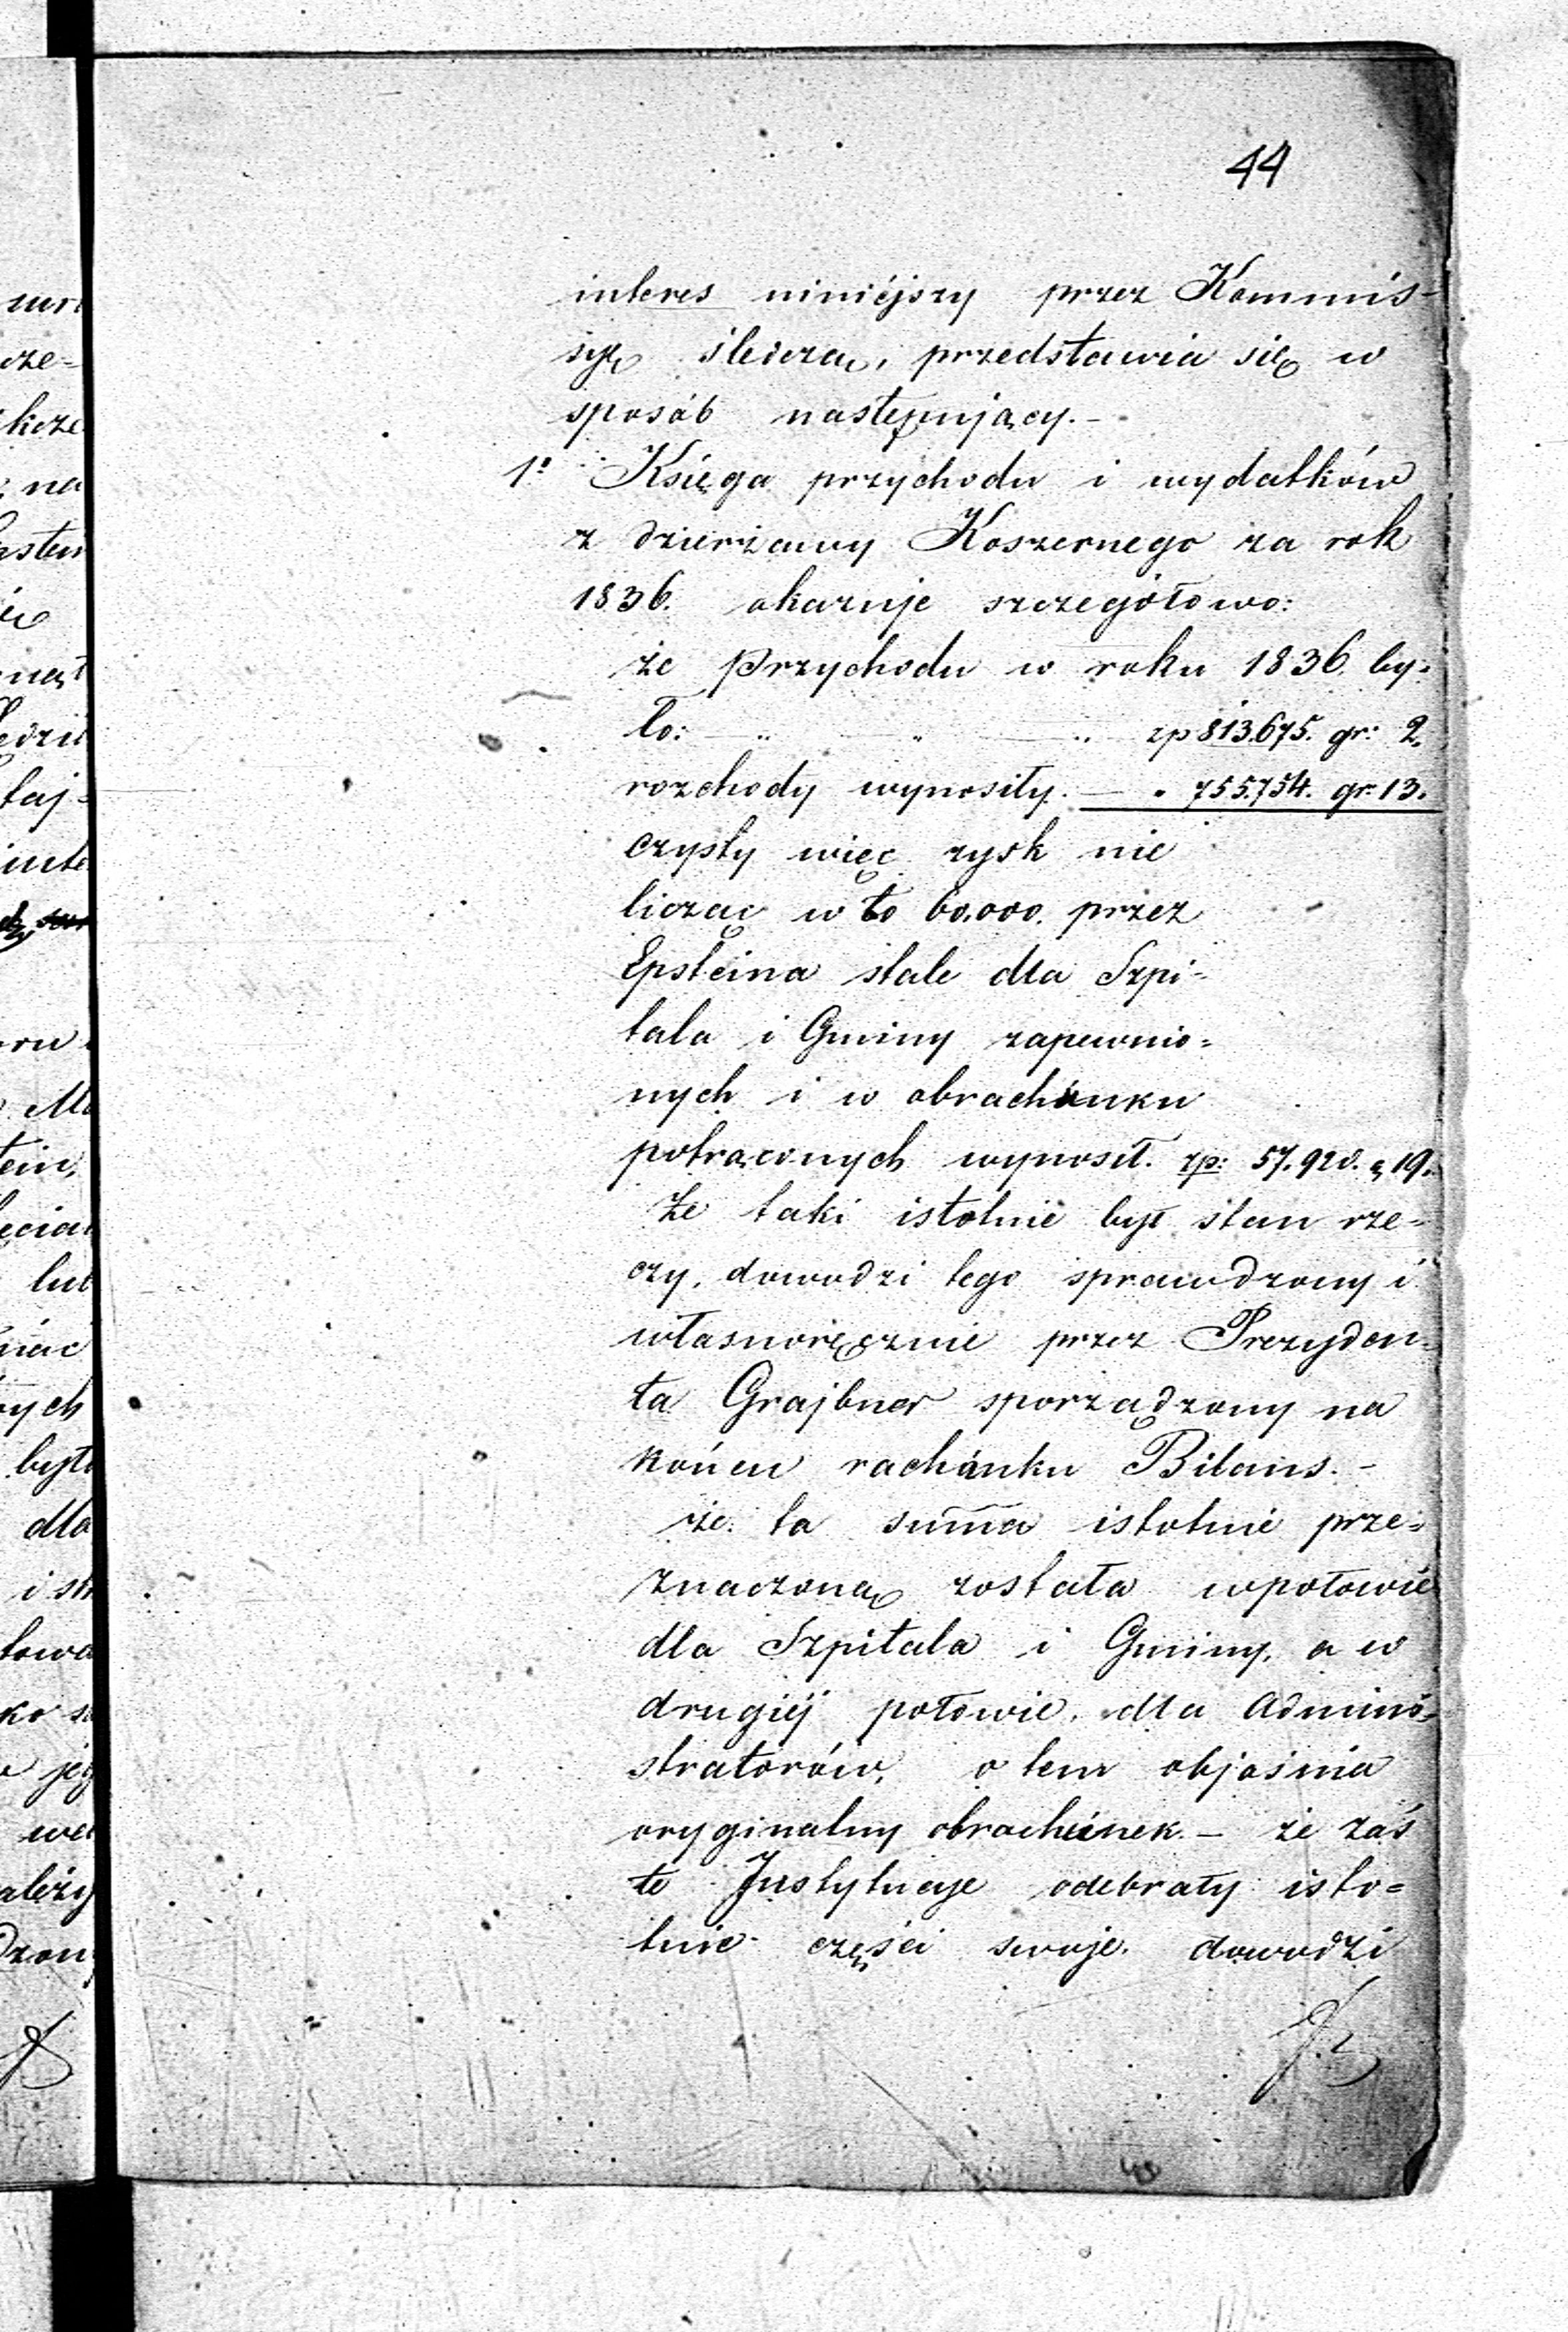 44
interes niniéjszy przez Kommis-
syę śledczą, przedstawia się w
sposób następujący.-
1º Księga przychodu i wydatków
z dzierżawy Koszernego za rok
1836. okazuje szczegółowo:
że Przychodu w roku 1836. by-
ło: zp 813.675. gr: 2.
rozchody wynosiły. — " 755.754. gr: 13.
czysty więc zysk nie
licząc w to 60.000. przez
Epsteina stale dla Szpi-
tala i Gminy zapewnio=
nych i w obrachunku
potrąconych wynosił. zp: 57.920. g 19.
Że taki istotnie był stan rze-
czy, dowodzi tego sprawdzony i
własnoręcznie przez Prezyden-
ta Grajbner sporządzony na
końcu rachunku Bilans.-
że ta summa istotnie prze-
znaczoną została wpołowie
dla Szpitala i Gminy, a w
drugiéj połowie, dla Admini-
stratorów, o tem objaśnia
oryginalny obrachunek.- że zaś
te Instytucye odebrały isto=
tnie części swoje. dowodzi